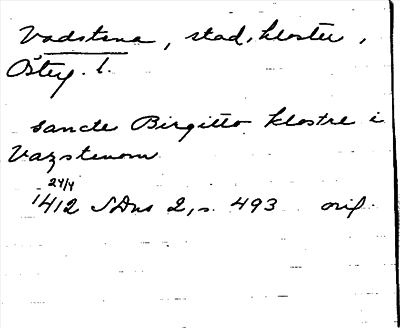 Vadstena, stad, kloster,
Östg. l.
sancte Birgitto klostre i
Vazstenom
24/4
1412 SDns 2, s. 493 orig.